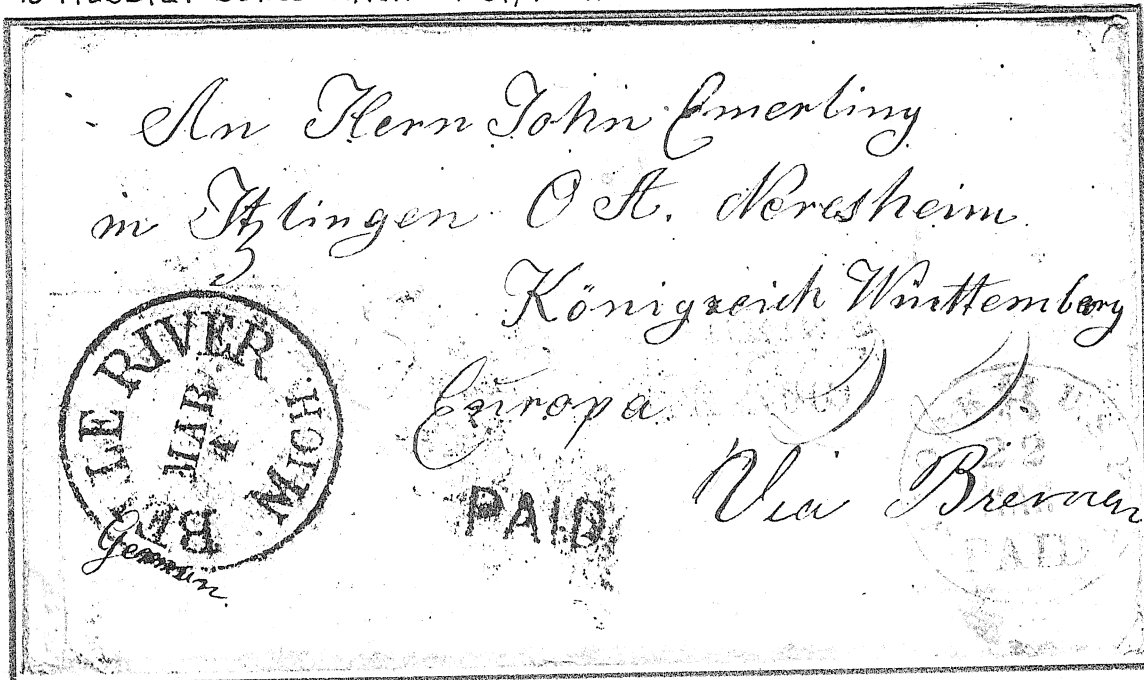 An Herrn John Emerling
in Itzlingen O A. Neresheim
Königreich Württemberg
Europa
Via Bremen
BELLE RIVER MICH.
MAR 4
German
PAID
22
PAID